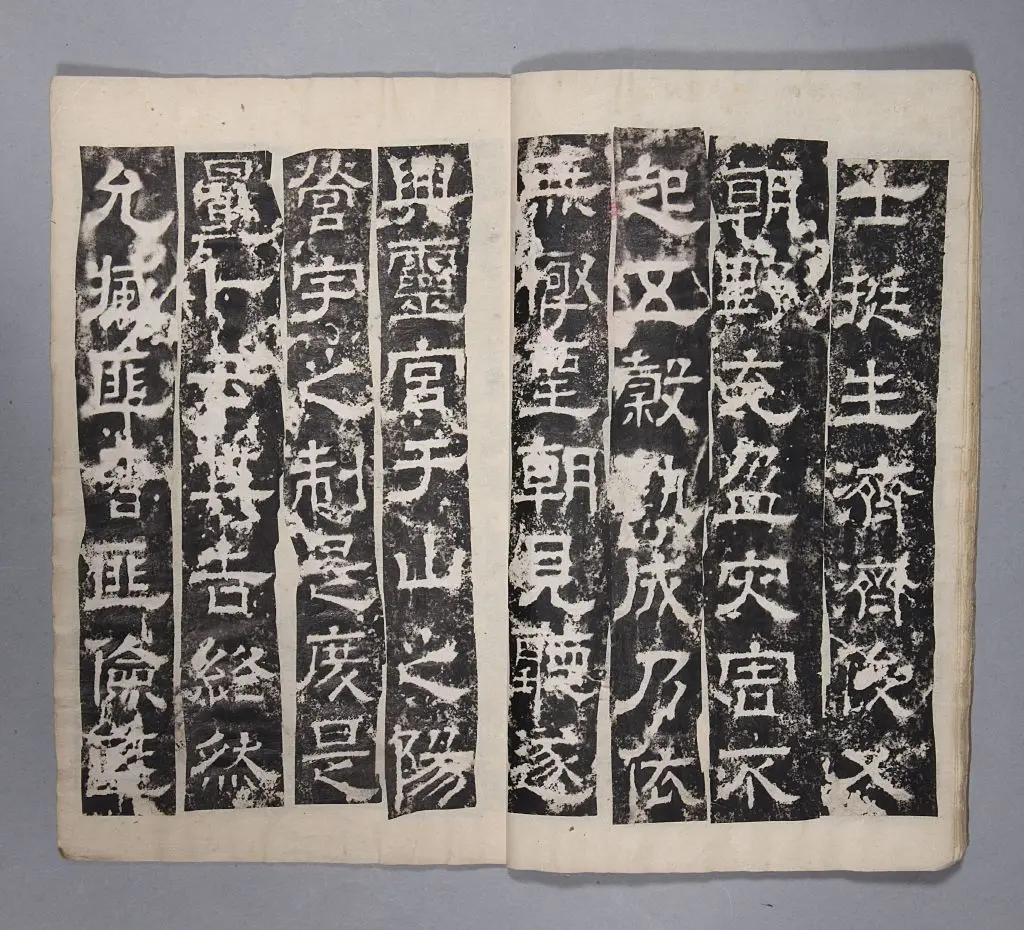 士挺生濟濟俊乂
朝野充盈灾害不
起五穀孰成乃依
無極聖朝見聽遂
興靈宮于山之陽
營宇之制是度是
量卜云其吉終然
允臧匪奢匪儉